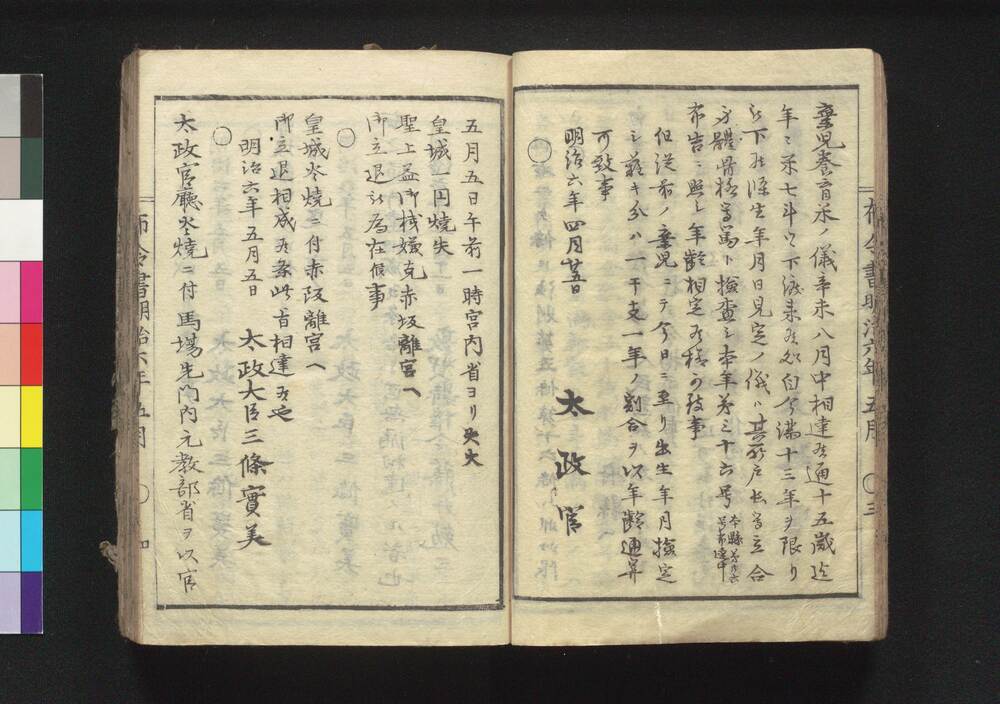 棄児養育米ノ儀辛未八月中相達候通十五歳迄
年々米七斗ツヽ下渡来候処自今満十三年ヲ限リ
被下候条生年月日見定ノ儀ハ其所戸長等立合
身體骨格等篤ト検査シ本年第三十六号
布告ニ照シ年齢相定候様可致事
但従前ノ棄児ニテ今日ニ至リ出生年月検定
シ難キ分ハ一干支一年ノ割合ヲ以年齢通算
可致事
明治六年四月廿五日
太政官
〇
布令書明治六年五月 〇三
五月五日午前一時宮内省ヨリ失火
皇城一円焼失
聖上益御機嫌克赤坂離宮ヘ
御立退被為在候事
〇
皇城炎焼ニ付赤阪離宮ヘ
御立退相成候条此旨相達候也
明治六年五月五日
太政大臣三條實美
〇
太政官廳炎焼ニ付馬場先門内元教部省ヲ以官
布令書明治六年五月 〇四